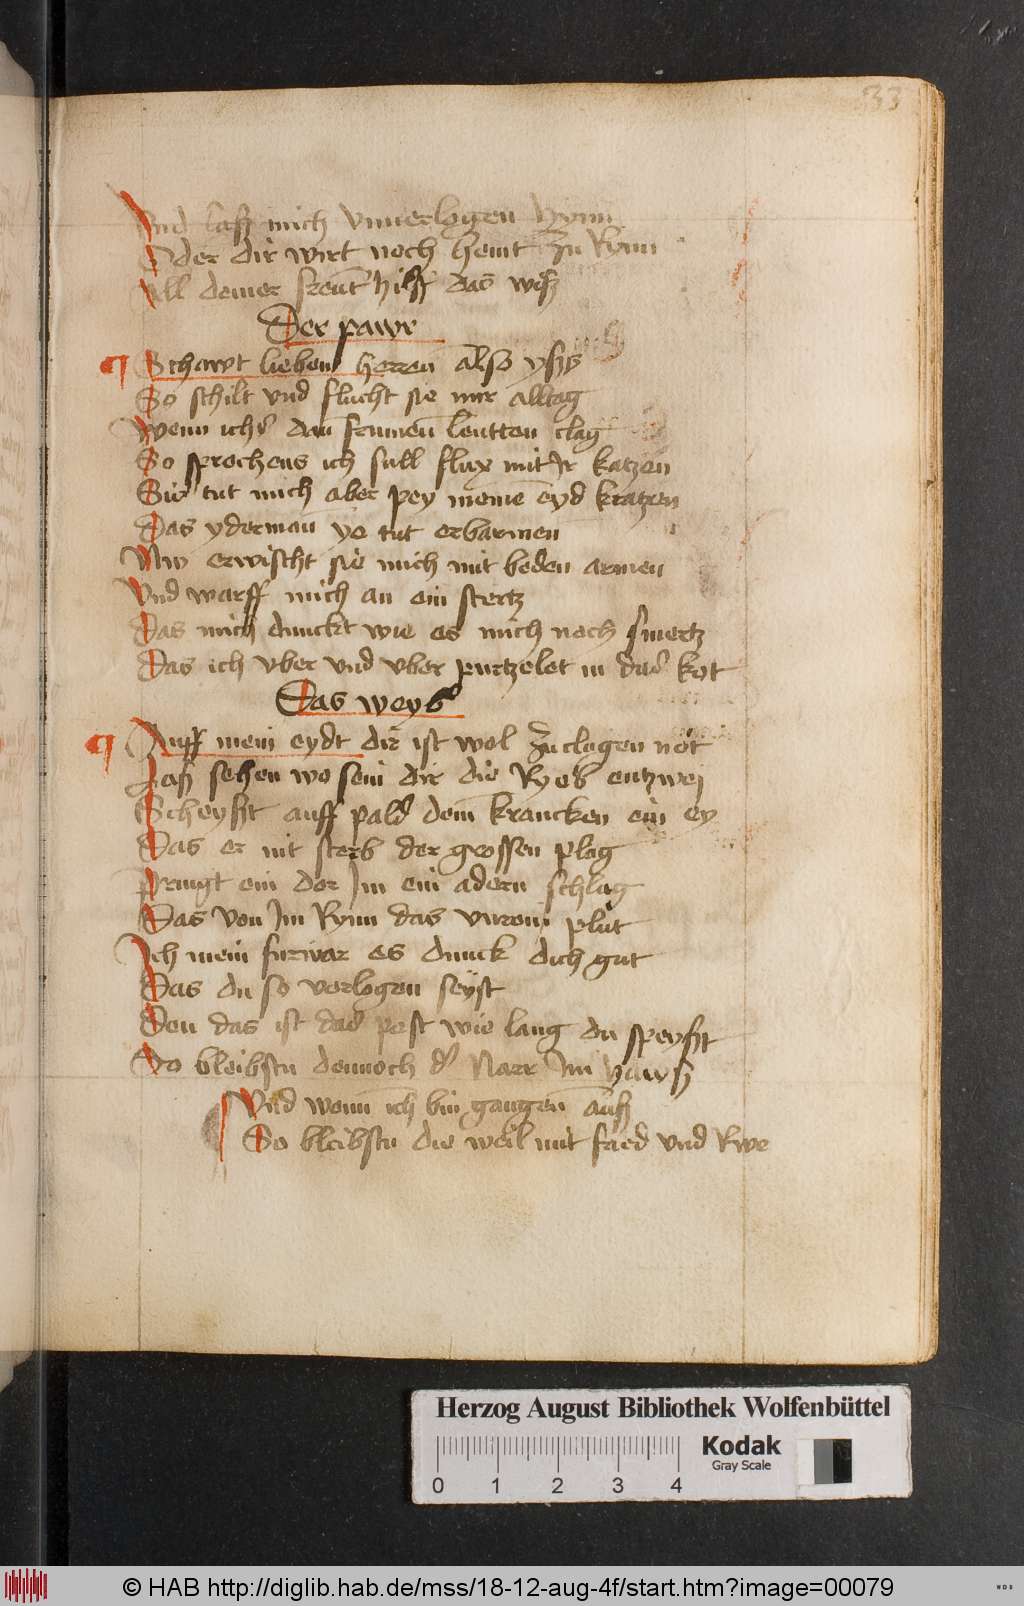 33
Vnd laß mich vnuerlogen hynn
Oder dir wirt noch heint zu Rynn
All deiner freunt hilff das wiß
Der pawr
Schawt lieben herren also yßs
So schilt vnd flucht sie mir alltag
Wenn ichs dan frumen leutten clag
So sprechens ich sull flux mit Ir katzen
Sie tut mich aber pey meinē eyd kratzen
Das yderman ye tut erbarmen
Nw erwischt sie mich mit beden armen
Vnd warff mich an ein stertz
Das mich dunckt wie es mich noch smertz
Das ich vber vnd vber purtzelet in das kot
Das weyb
Auff mein eydt dir ist wol zu clogen not
Laß sehen wo sein dir die Ryeb entzwei
Scheyßt auff pald dem krancken ein ey
Das er nit sterb der grossen plag
Pringt ein der Im ein adern schlag
Das von Im Rynn das vnrein plut
Ich mein furwar es dunck dich gut
Das du so verlogen seyst
Den das ist das pest wie lang du speyßt
So bleibstu dennoch d' Narr Im hawß
Vnd wenn ich bin gangen auß
So bleibstu die weil mit fried vnd Rwe
Herzog August Bibliothek Wolfenbüttel
Kodak
Gray Scale
0 1 2 3 4
© HAB http://diglib.hab.de/mss/18-12-aug-4f/start.htm?image=00079